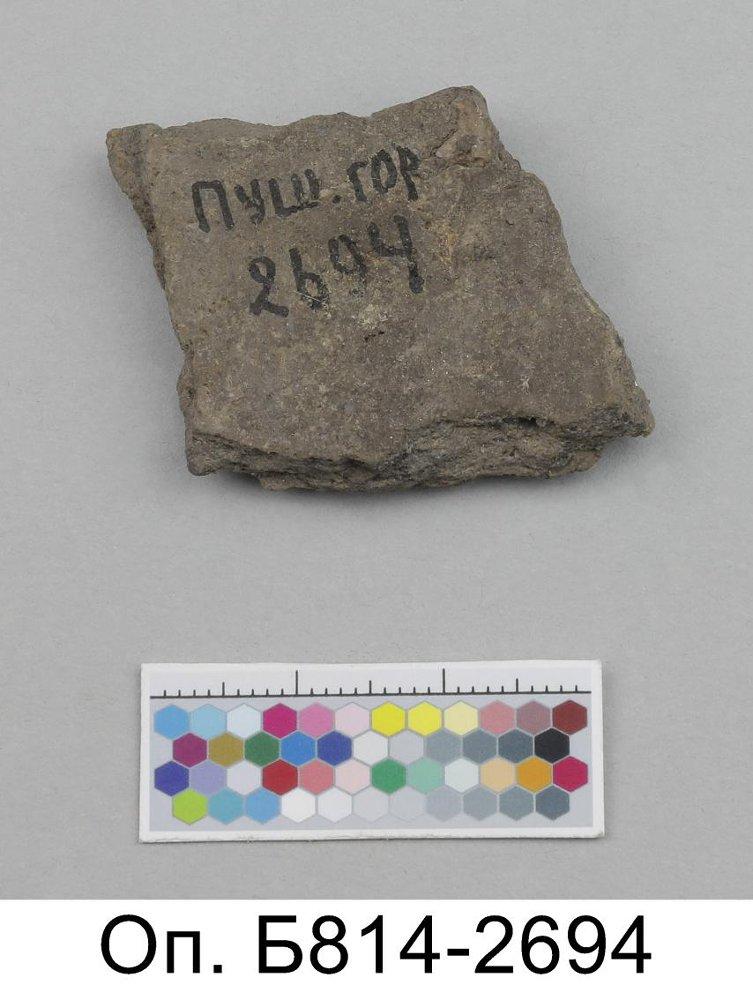 ПУШ.ГОР
2694
Оп. Б814-2694